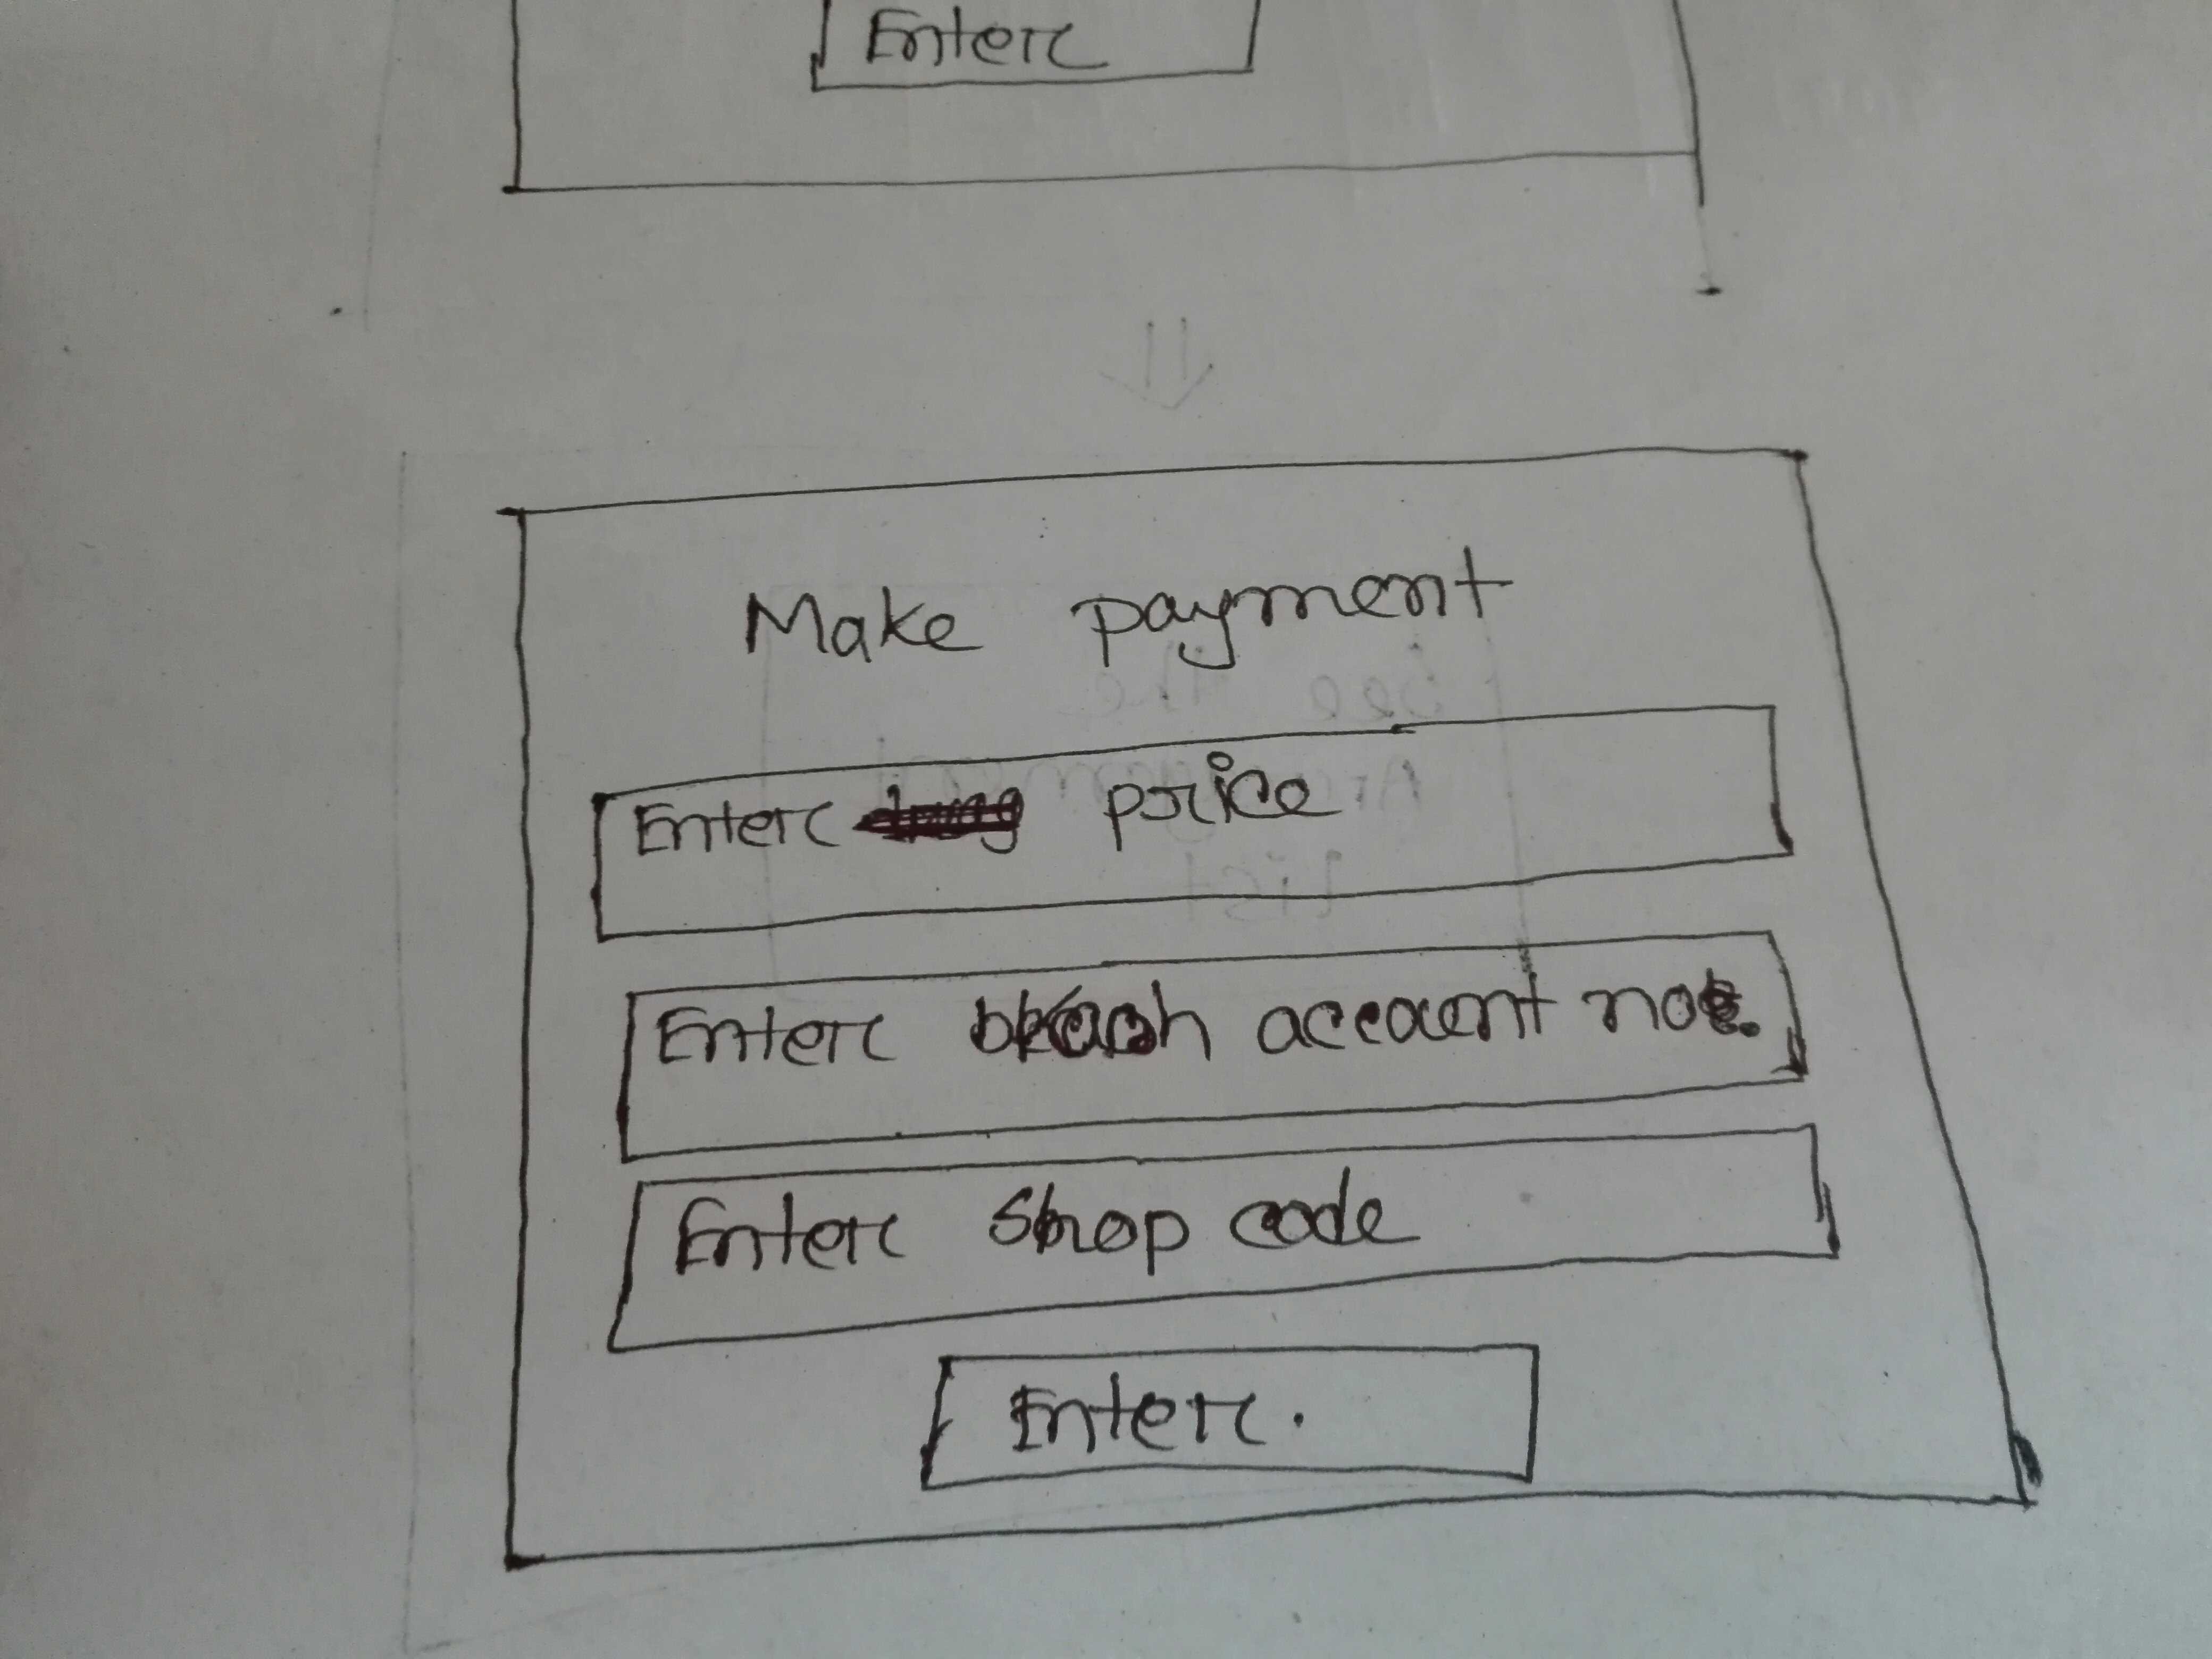 Enter
Make payment
Enter price
Enter bkash account no.
Enter Shop code
Enter.